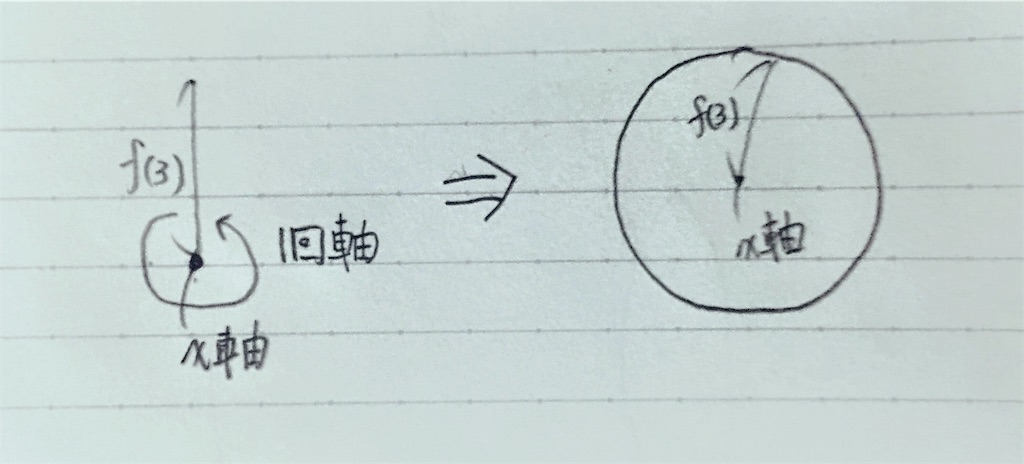 f(3)
1回軸
x軸
f(3)
x軸